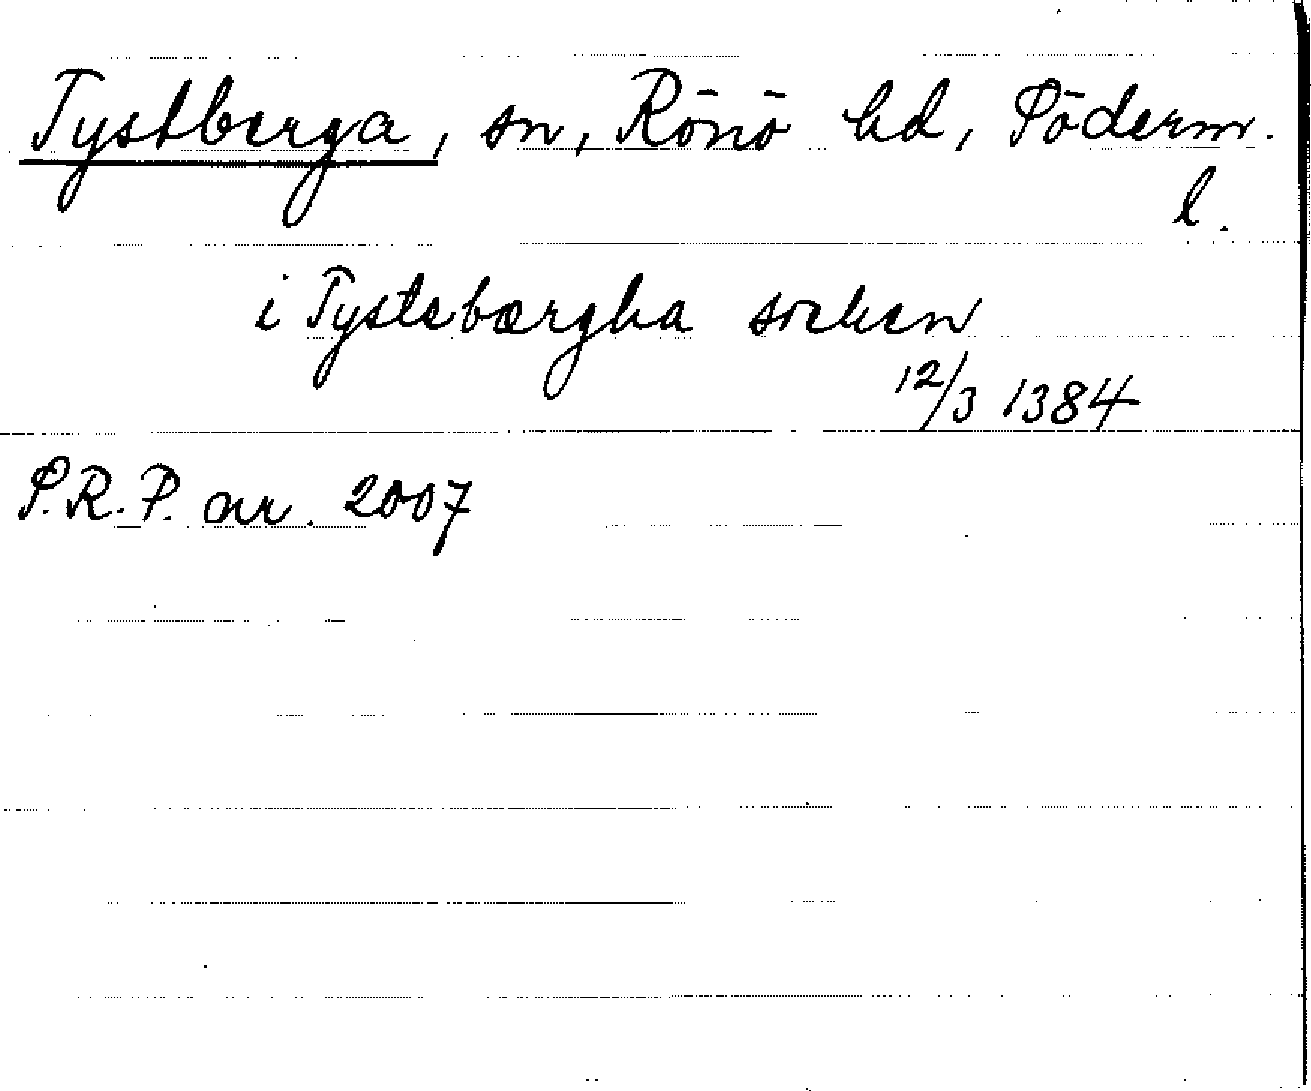 Tystberga, sn, Rönö hd, Söderm.
l.
i Tystebærgha socken
12/3 1384
S.R.P. nr. 2007